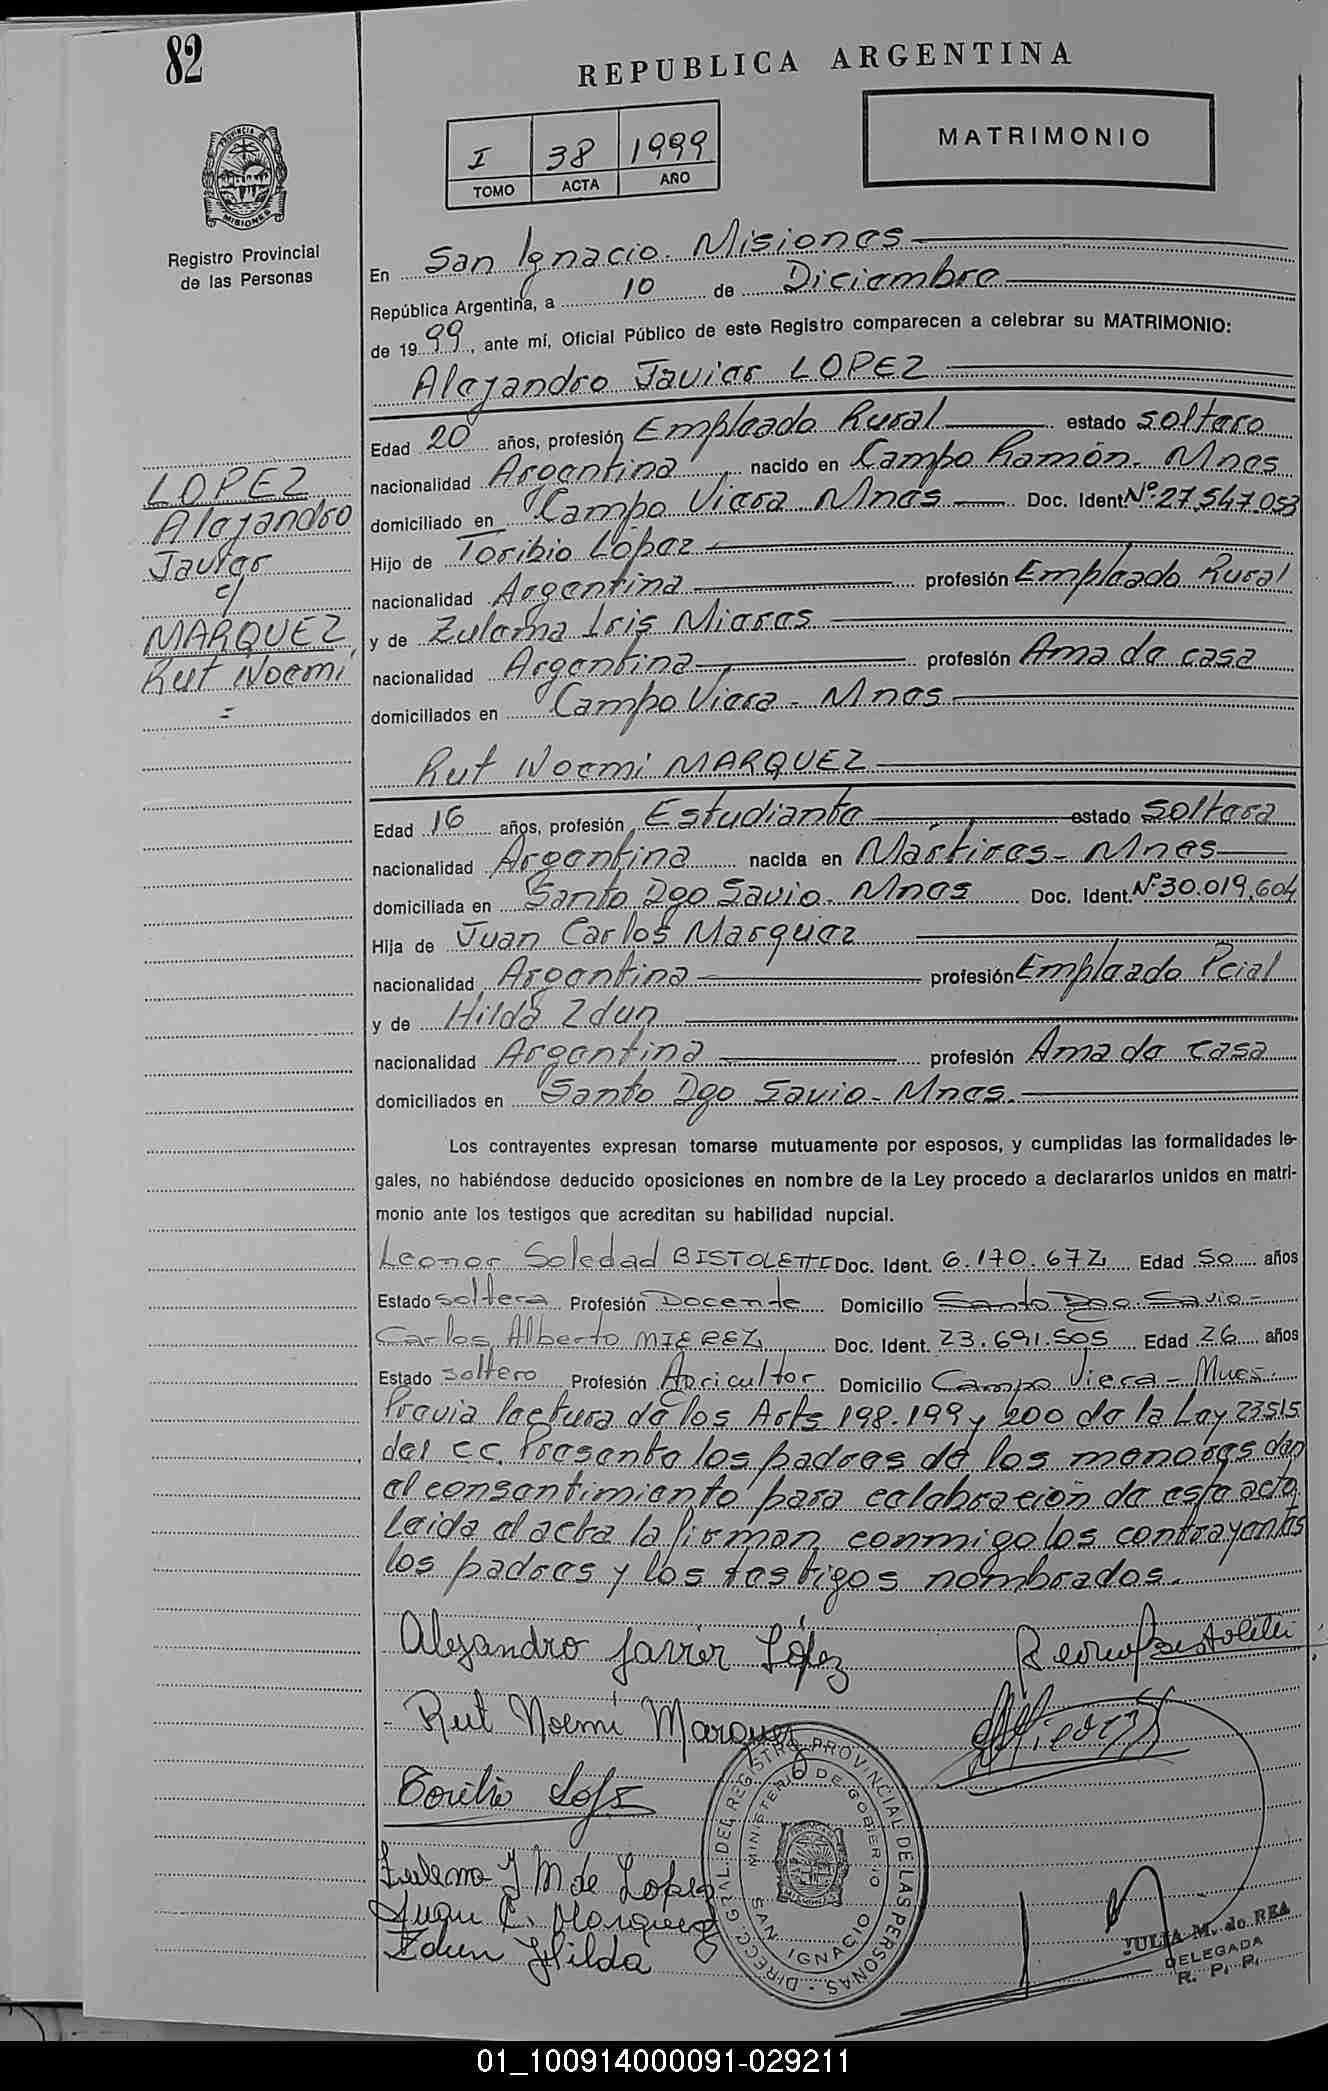 82
REPUBLICA ARGENTINA
I 38 1999
TOMO ACTA AÑO
MATRIMONIO
PROVINCIA DE
MISIONES
Registro Provincial
de las Personas
En San Ignacio. Misiones
República Argentina, a 10 de Diciembre
de 1999, ante mí, Oficial Público de este Registro comparecen a celebrar su MATRIMONIO:
Alejandro Javier LOPEZ
Edad 20 años, profesión Empleado Rural estado soltero
nacionalidad Argentina nacido en Campo Ramón. Mnes
domiciliado en Campo Viera Mnes Doc. Ident. Nº 27.547.053
Hijo de Toribio López
nacionalidad Argentina profesión Empleado Rural
y de Zulema Iris Mieres
nacionalidad Argentina profesión Ama de casa
domiciliados en Campo Viera - Mnes
LOPEZ
Alejandro
Javier
c/
MARQUEZ,
Rut Noemi
=
Rut Noemi MARQUEZ
Edad 16 años, profesión Estudiante estado soltera
nacionalidad Argentina nacida en Mártires - Mnes
domiciliada en Santo Dgo Savio. Mnes Doc. Ident. Nº 30.019.604
Hija de Juan Carlos Marquez
nacionalidad Argentina profesión Empleado Pcial
y de Hilda Zdun
nacionalidad Argentina profesión Ama de casa
domiciliados en Santo Dgo Savio - Mnes.
Los contrayentes expresan tomarse mutuamente por esposos, y cumplidas las formalidades le-
gales, no habiéndose deducido oposiciones en nombre de la Ley procedo a declararlos unidos en matri-
monio ante los testigos que acreditan su habilidad nupcial.
Leonor Soledad BISTOLETTI Doc. Ident. 6.170.672 Edad 50 años
Estado soltera Profesión Docente Domicilio Santo Dgo. Savio -
Carlos Alberto MIEREZ Doc. Ident. 23.691.505 Edad 26 años
Estado soltero Profesión Agricultor Domicilio Campo Viera - Mnes.
Previa lectura de los Arts 198.199 y 200 de la Ley 23515
del C C. Presente los padres de los menores dan
el consentimiento para celebración de este acto
Leida el acta la firman conmigo los contrayentes
los padres y los testigos nombrados.
Alejandro Javier López
Rut Noemi Marquez
Toribio López
Zulema I M de Lopez
Juan C. Marquez
Zdun Hilda
DIRECC. GRAL. DEL REGISTRO PROVINCIAL DE LAS PERSONAS
MINISTERIO DE GOBIERNO
SAN IGNACIO
JULIA M. de REA
DELEGADA
R. P. P.
01_100914000091-029211